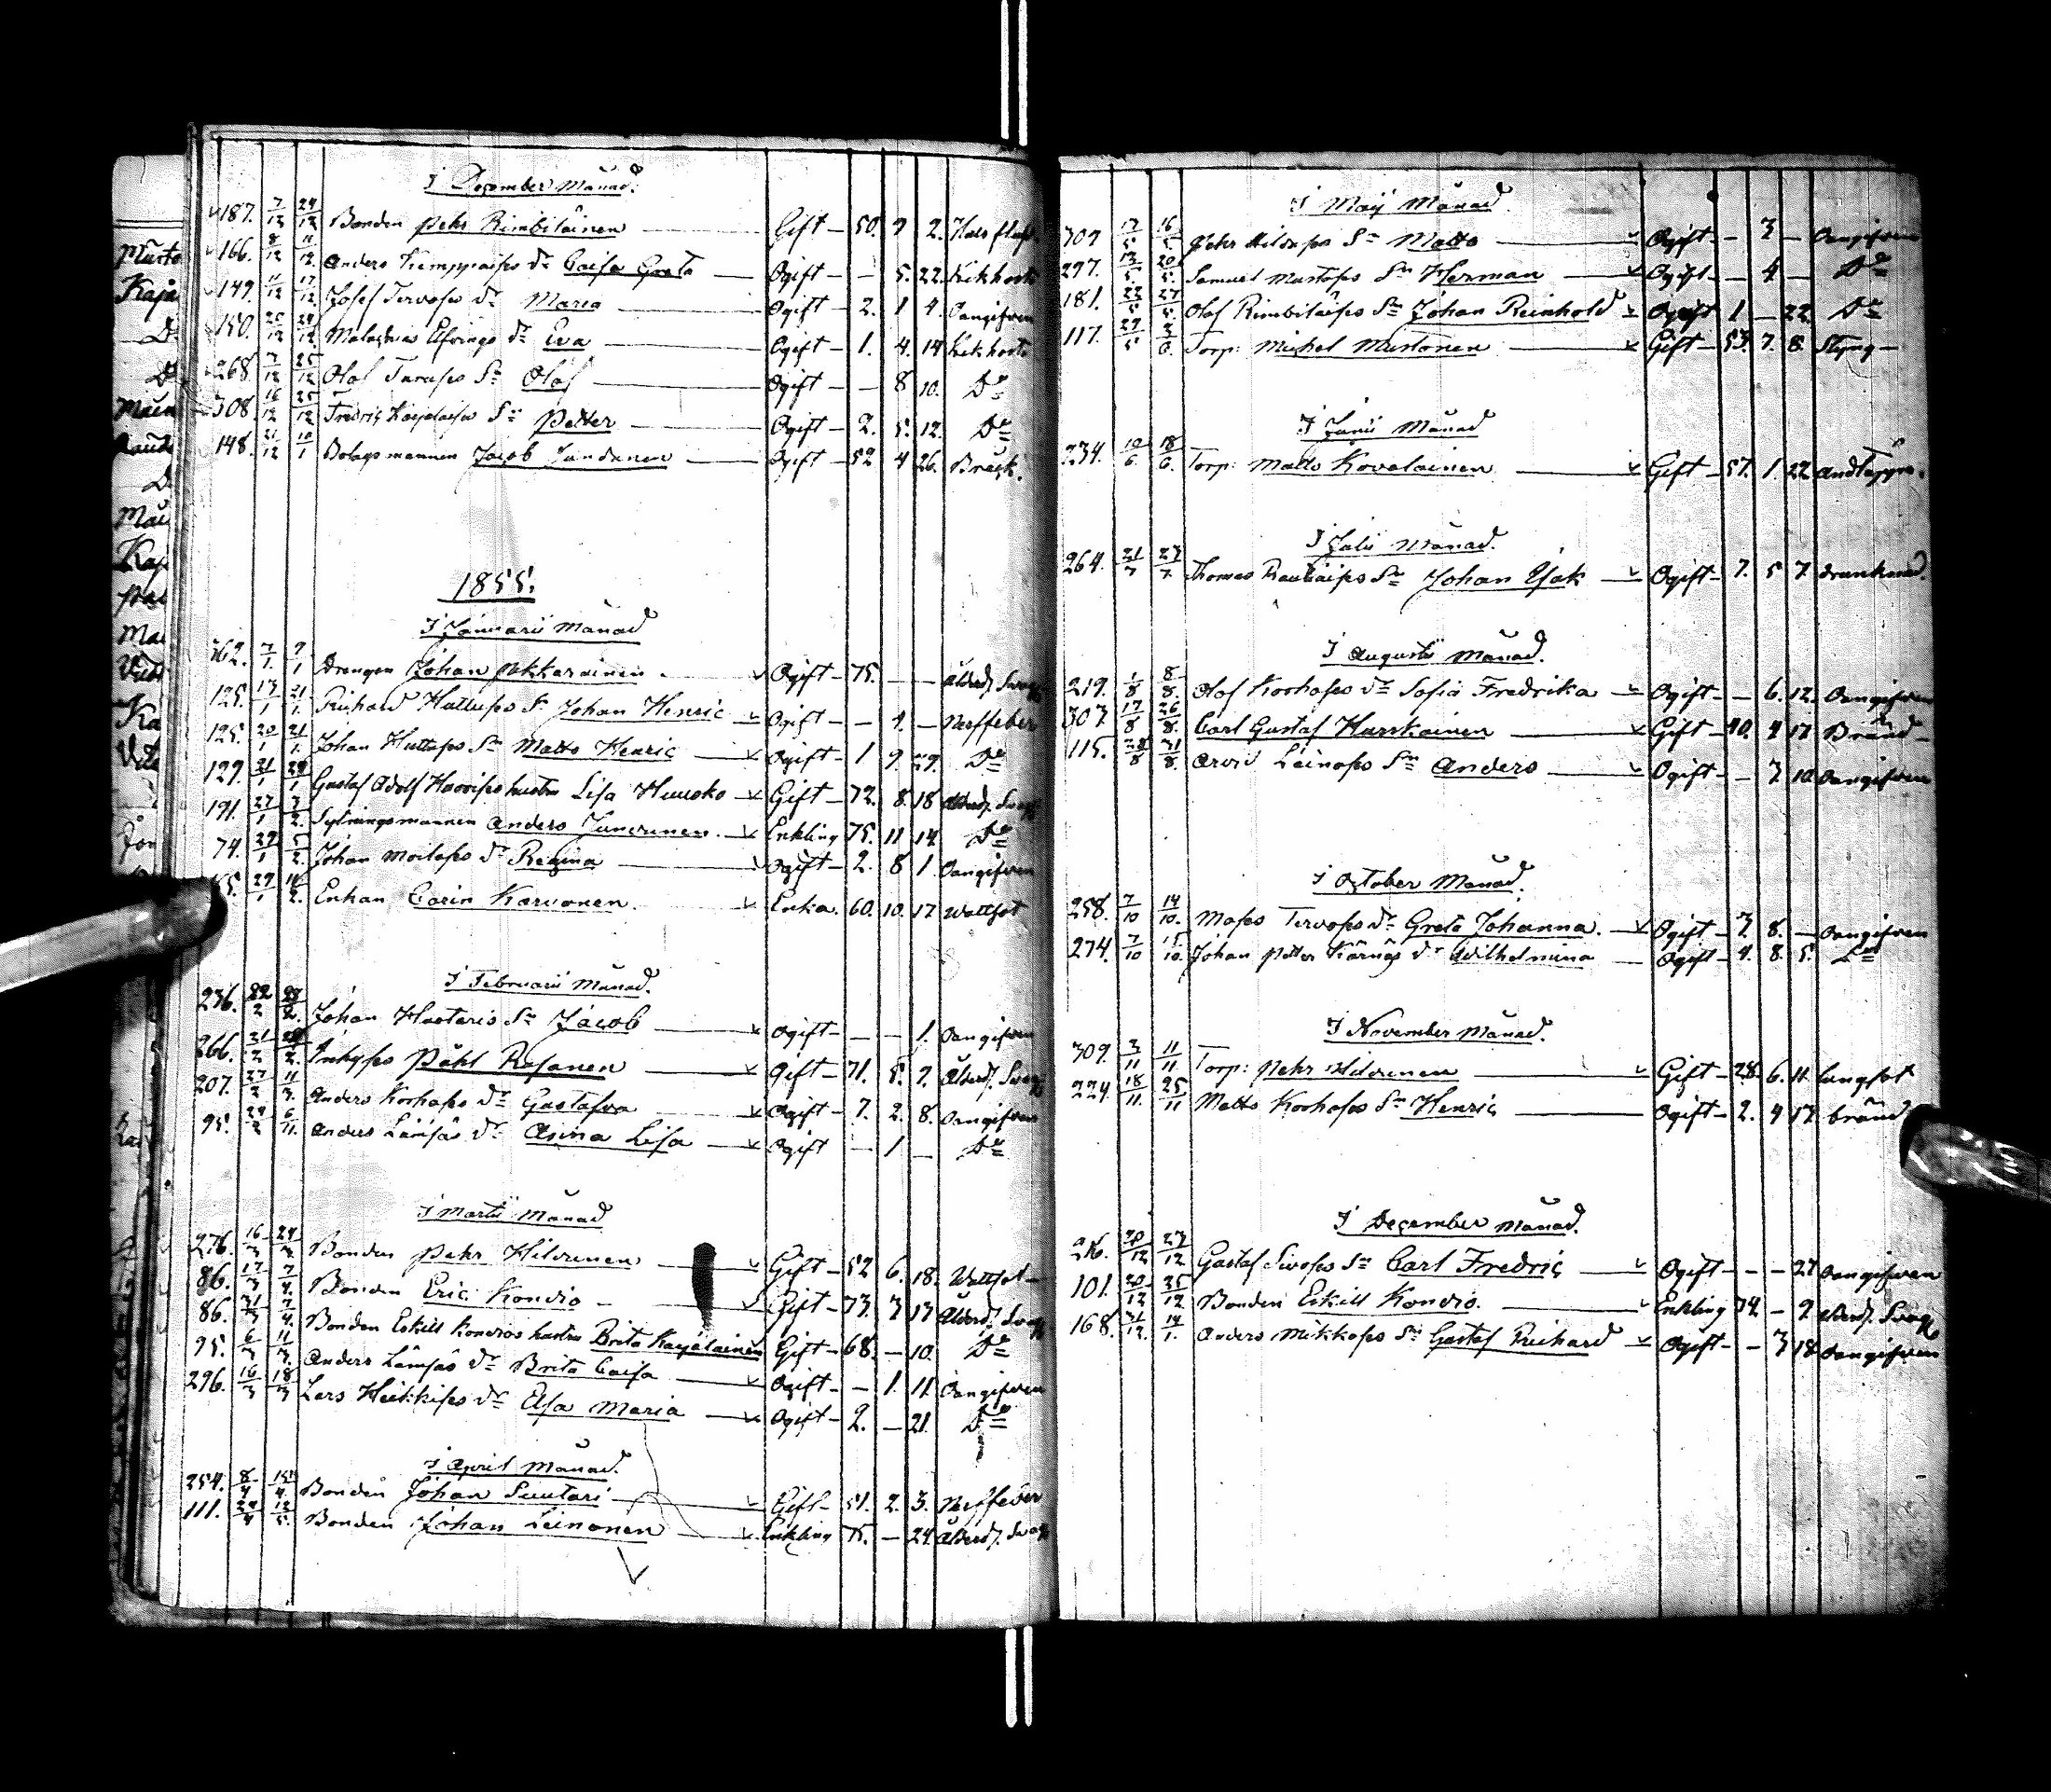 I December Månad.
187. 7/12 24/12 Bonden Pehr Rimbiläinen Gift 50. 9 2.
166. 8/12 11/12 Anders Kemppaiss dr Caisa Greta Ogift — 5. 22. Kikhosta
149. 11/12 17/12 Josef Tervoss dr Maria Ogift 2. 1 4. Oangifven
150. 20/12 24/12 Elfvings dr Eva Ogift 1. 4. 14 Kikhosta
268. 7/12 25/12 Olof Sn Olof Ogift — 8 10. Do
308. 16/12 25/12 Fredric Sn Petter Ogift 2. 5. 12. Do
148. 21/12 10/1 Bolagsmannen Jacob Jundunen Ogift 52 4 26. Bråck.
1855.
I Januarii Månad
362. 7/1 9/1 Drengen Johan Pekkarainen Ogift 75. — — ålderd. Svagh
125. 17/1 21/1 Richard Huttuss Sn Johan Henric Ogift — 4. — Nerffeber
125. 20/1 21/1 Johan Huttuss Sn Matts Henric Ogift 1 9. 29. Do
129. 21/1 28/1 Gustaf Adolf hustru Lisa Huusko Gift 72. 8. 18 ålderd. Svagh
191. 27/1 3/2 Sytningsmannen Anders Juntunen. Enkling 75. 11 14. Do
74. 29/1 5/2 Johan Moilass dr Regina Ogift 2. 8 1. Oangifven
5. 29/1 Enkan Carin Karvonen Enka. 60. 10. 17 Wattsot
I Februarii Månad.
236. 22/2 28/2 Johan Sn Jacob Ogift — — 1. Oangifven
266. 21/2 28/2 Inhyss Påhl Rasanen Gift 71. 5. 7. Ålderd. Svagh
207. 27/2 11/3 Anders Korhoss dr Gustafva Ogift 7. 2. 8. Oangifven
95. 24/2 Anders Lämsäs dr Anna Lisa Ogift — 1 — Do
I Martii Månad
276. 16/3 24/3 Bonden Pehr Hildunen Gift 52 6. 18. Wattsot
86. 17/3 7/4 Bonden Eric Kondio Gift 73. 3 13 Ålderd. Svagh
86. 31/3 7/4 Bonden Eskill Kondios hustru Brita Kajalainen Gift 68. — 10. Do
95. 6/3 11/3 Anders Lämsäs dr Brita Caisa Ogift — 1. 11. Oangifven
296. 16/3 18/3 Lars Heikkiss dr Elsa Maria Ogift 2. — 21. Do
I April Månad.
254. 8/4 15/4 Bonden Johan Suutari Gift 51. 2. 3. Nerffeber
111. 24/4 12/5 Bonden Johan Leinonen Enkling 75. — 24. Ålderd. Svagh
I Maij Månad.
309 13/5 16/5 Pehr Hilduss Sn Matts Ogift — 3 — Oangifven
297. 13/5 20/5 Samuel Mustoss Sn Herman Ogift — 4 — Do
181. 22/5 27/5 Olof Rimbiläiss Sn Johan Reinhold Ogift 1 — 22. Do
117. 29/5 3/6 Torp: Michel Mustonen Gift 53. 7. 8. Styng
I Junii Månad
234. 10/6 18/6 Torp: Matts Kovalainen Gift 57. 1. 22
I Julii Månad.
264. 21/7 27/7 Thomas Rautiaiss Sn Johan Isak Ogift 7. 5 7. drunknad.
I Augusti Månad.
219. 1/8 8/8 Olof Korhoss dr Sofia Fredrika Ogift — 6. 12. Oangifven
307 17/8 26/8 Carl Gustaf Hurskainen Gift 40. 4 17. Bränd
115. 28/8 31/8 Arvid Leinoss Sn Anders Ogift — 3 10 Oangifven
I October Månad.
258. 7/10 14/10 Moses Tervoss dr Greta Johanna. Ogift 3. 8. — Oangifven
274. 7/10 15/10 Johan Petter Kärnäs dr Wilhelmina Ogift 4. 8. 5. Do
I November Månad.
309. 3/11 11/11 Torp: Pehr Hildunen Gift 28. 6. 11. lungsot
224. 18/11 25/11 Matts Korhoss Sn Henric Ogift 2. 4 17. bränd
I December Månad.
216. 20/12 27/12 Gustaf Sivoss Sn Carl Fredric Ogift — — 27 Oangifven
101. 20/12 25/12 Bonden Eskill Kondio. Enkling 74. — 9 ålderd. Svagh
168. 31/12 14/1 Anders Mikkoss Sn Gustaf Richard Ogift — 3 18 Oangifven